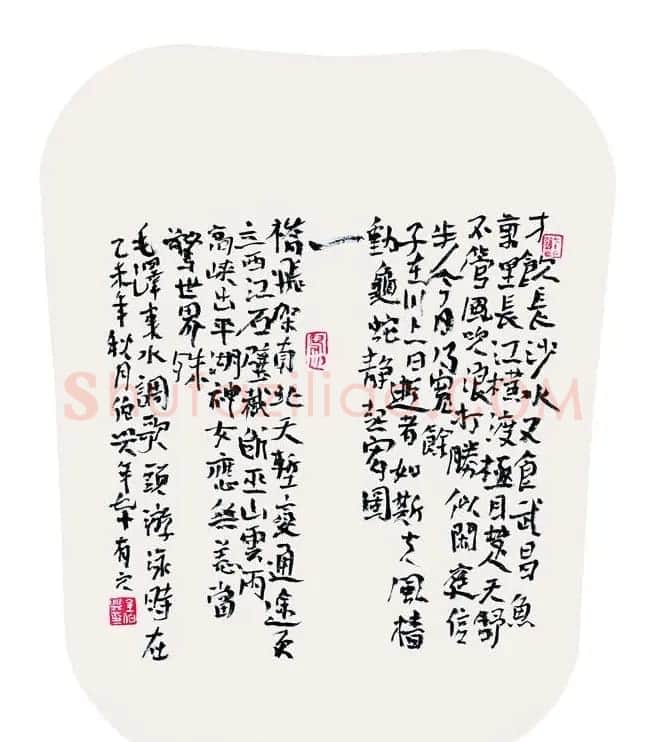 才飲長沙水又食武昌魚
萬里長江橫渡極目楚天舒
不管風吹浪打勝似閑庭信
步今日得寬餘
子在川上曰逝者如斯夫風檣
動龜蛇靜起宏圖
一
橋飛架南北天塹變通途更
立西江石壁截斷巫山雲雨
高峽出平湖神女應無恙當
驚世界殊
毛澤東水調歌頭游泳時在
乙未年秋月伯年十有
Shufaziliao.COM